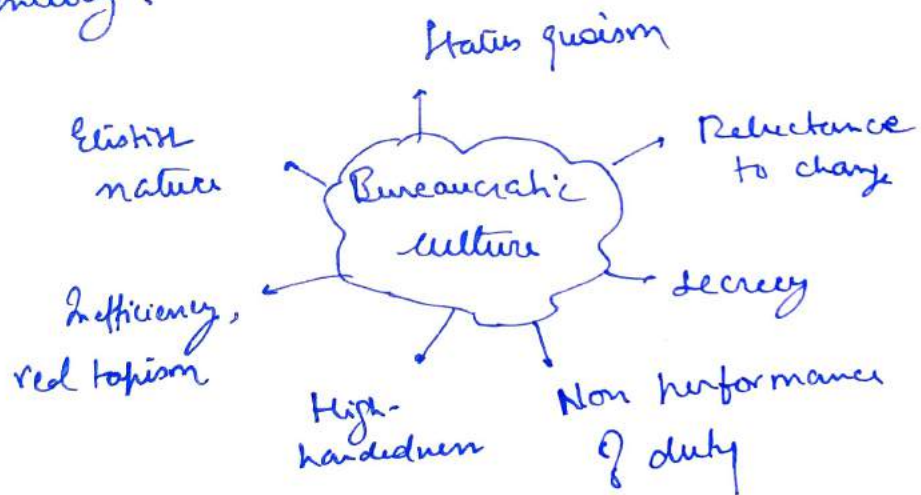 Status quoism
Elistist
nature
Bureaucratic
culture
Reluctance
to change
secrecy
Inefficiency,
red tapism
High-
handedness
Non performance
of duty